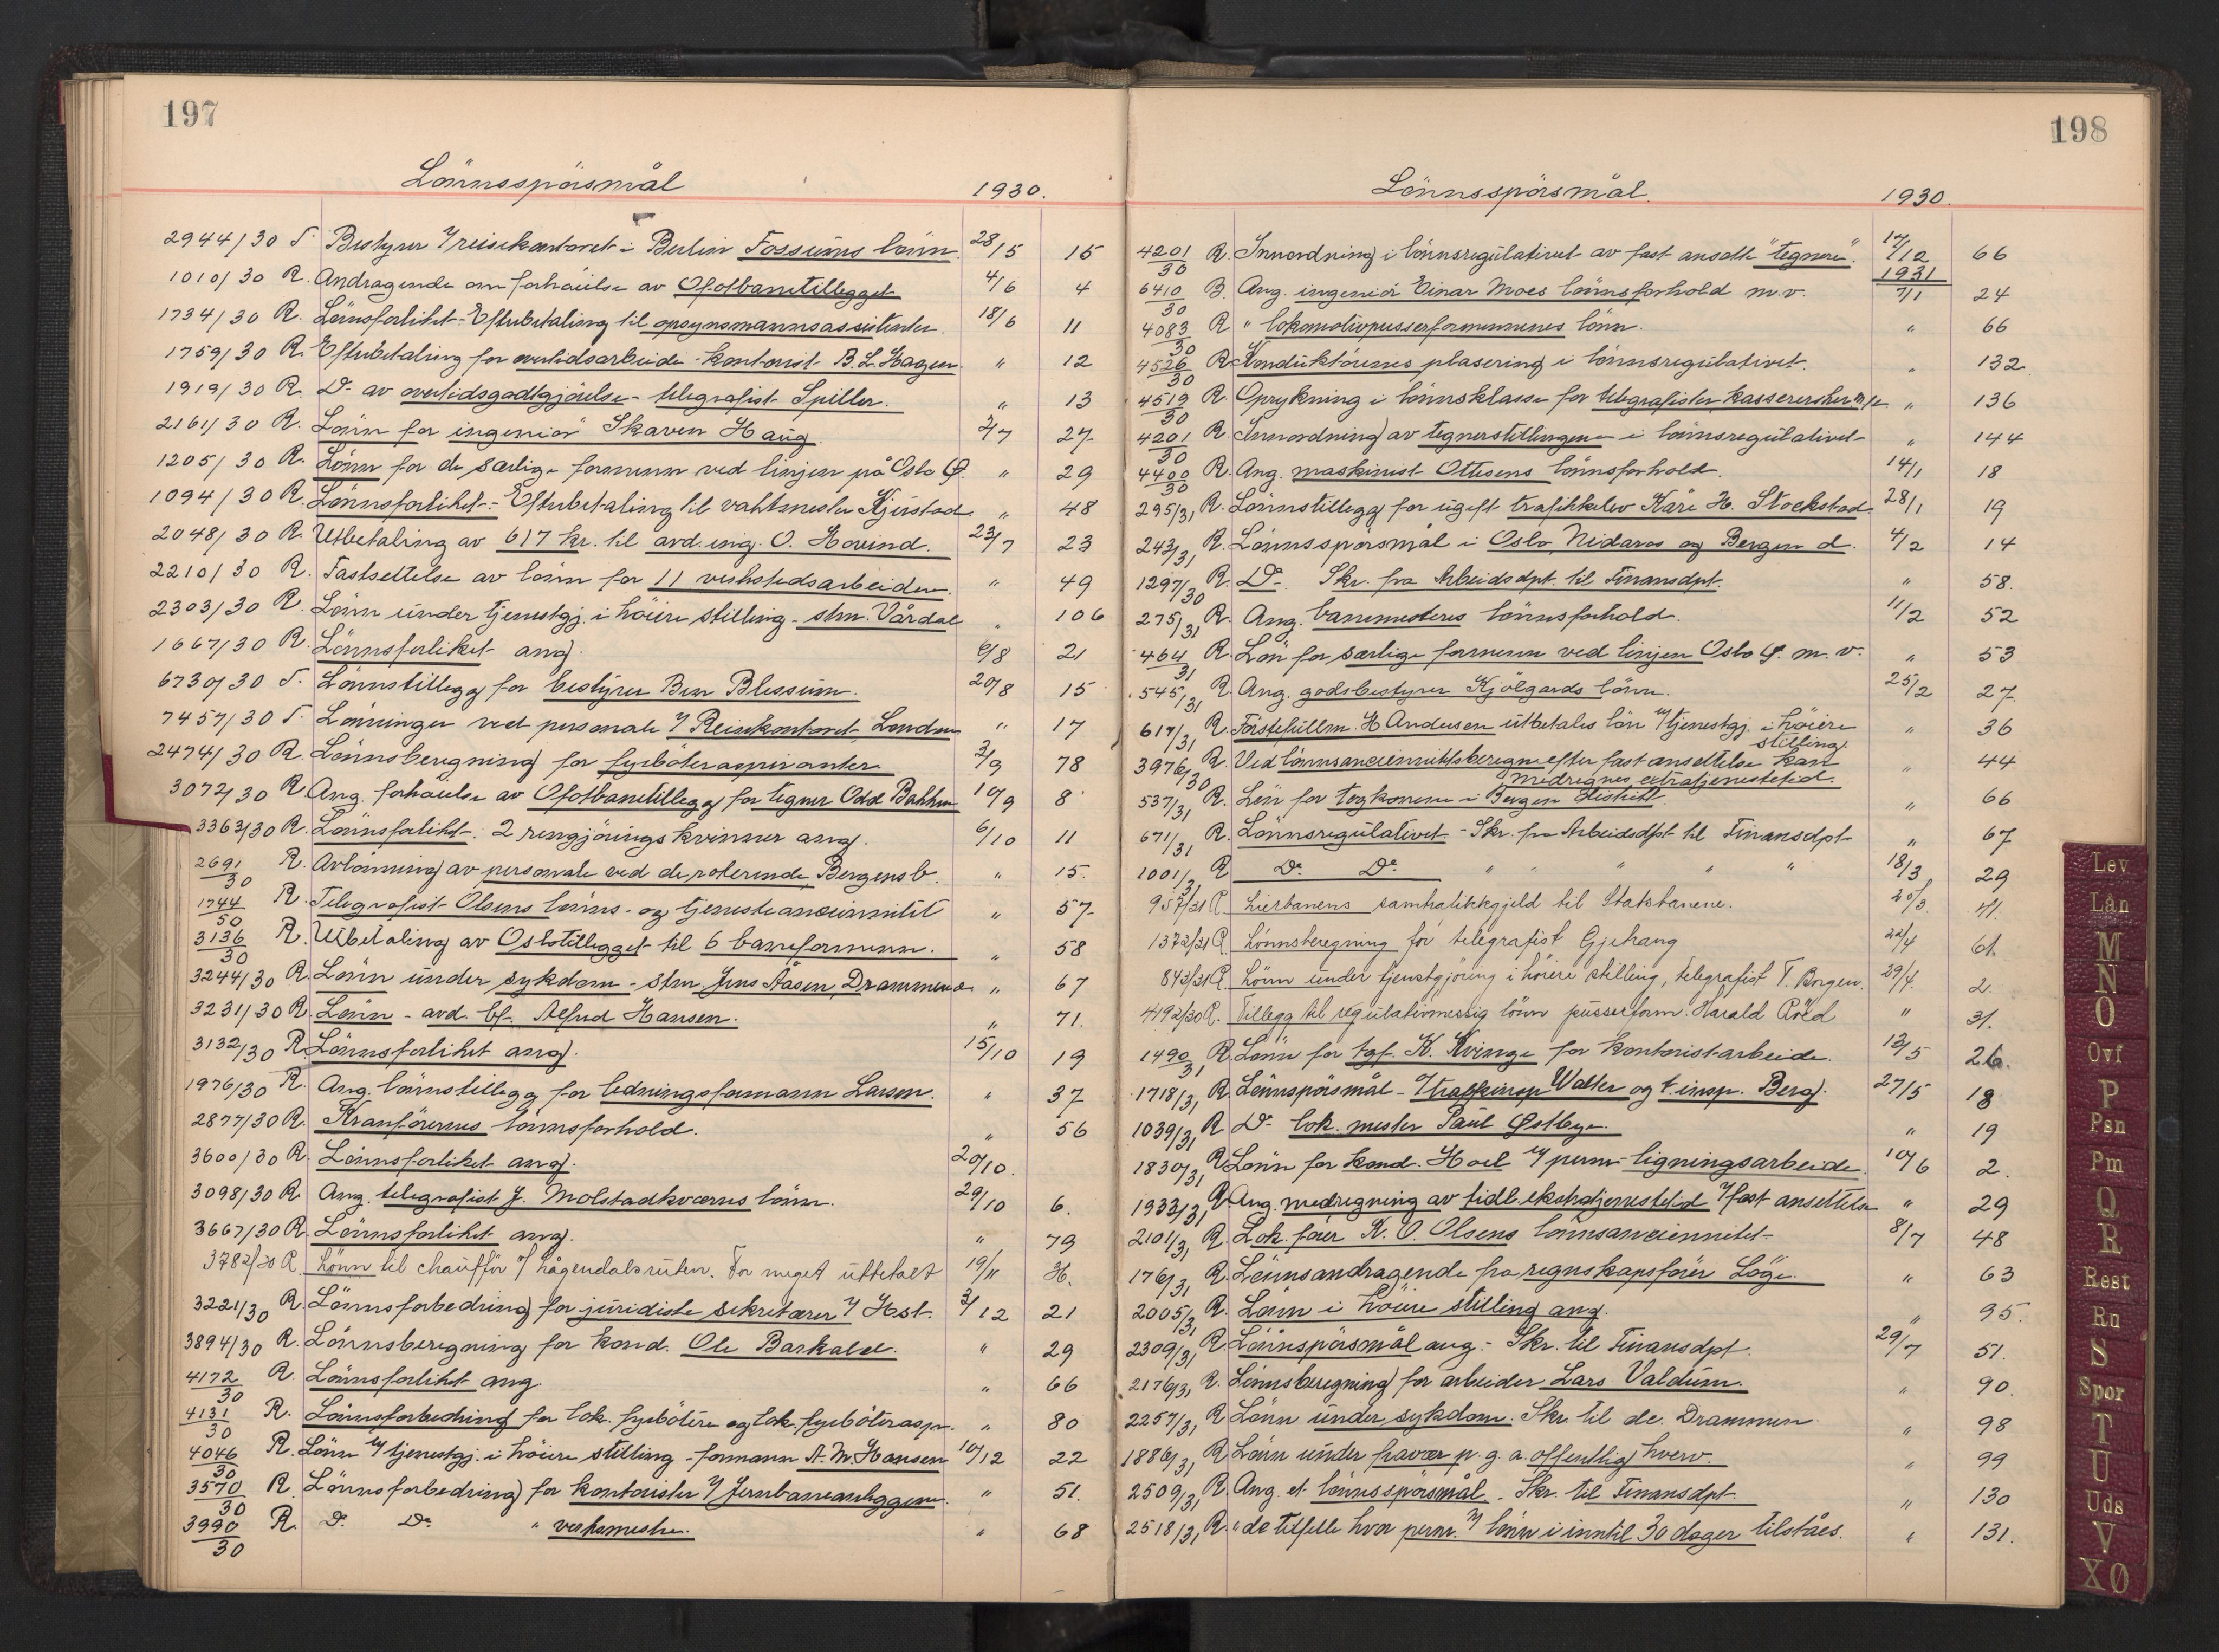 197
Lönnsspörsmål 1930.
2944/30 T. Bestyrer v/ reisekontoret i Berlin Fossums lönn. 28/5 15
1010/30 R. Andragende om forhöielse av Ofotbanetillegget 4/6 4
1734/30 R. Lönnsforliket - Efterbetaling til opsynsmannsassistenter. 18/6 11
1759/30 R. Efterbetaling for overtidsarbeide - kontorist B. L. Hagen. " 12
1919/30 R. Do av overtidsgodtgjörelse - telegrafist Spiller. " 13
2161/30 R. Lönn for ingeniör Skaven Haug. 2/7 27
1205/30 R. Lönn for de særlige formenn ved linjen på Oslo Ø. " 29
1094/30 R. Lönnsforliket - Efterbetaling til vaktmester Kjirstad " 48
2048/30 R. Utbetaling av 617 kr. til avd.ing. O. Hovind. 23/7 23
2210/30 R. Fastsettelse av lönn for 11 verkstedsarbeidere. " 49
2303/30 R. Lönn under tjenestgj. i höiere stilling - stm. Vårdal " 106
1667/30 R. Lönnsforliket ang. 6/8 21
6730/30 T. Lönnstillegg for bestyrer Ben Blessum. 20/8 15
7457/30 T. Lönninger ved personale v/ Reisekontoret, London " 17
2474/30 R. Lönnsberegning for fyrböteraspiranter 3/9 78
3072/30 R. Ang. forhöielse av Ofotbanetillegg for tegner Odd Bakken 10/9 8
3363/30 R. Lönnsforliket. 2 rengjöringskvinner ang. 6/10 11
2691/30 R. Avlönning av personale ved de roterende, Bergensb. " 15.
1744/30 R. Telegrafist Olsens lönns- og tjenesteansiennitet " 57
3136/30 R. Utbetaling av Oslotillegget til 6 baneformenn. " 58
3244/30 R. Lönn under sykdom - stm. Jens Åsen, Drammen d. " 67
3231/30 R. Lönn - avd. bf. Alfred Hansen. " 71.
3132/30 R. Lönnsforliket ang. 15/10 19
1976/30 R. Ang. lönnstillegg for ledningsformann Larsen. " 37
2877/30 R. Kranförernes lönnsforhold. " 56
3600/30 R. Lönnsforliket ang. 20/10.
3098/30 R. Ang. telegrafist J. Molstadkværns lönn. 29/10 6.
3667/30 R. Lönnsforliket ang. " 79
3782/30 R. Lönn til chaufför v/ Lågendalsruten. For meget utbetalt 19/11
3221/30 R. Lönnsforbedring for juridiske sekretærer v/ Hst. 3/12 21
3894/30 R. Lönnsberegning for kond. Ole Barkald. " 29
4172/30 R. Lönnsforliket ang. " 66
4131/30 R. Lönnsforbedring for lok. fyrbötere og lok. fyrböterasp. " 80
4046/30 R. Lönn v/ tjenestgj. i höiere stilling - formann A. M. Hansen 10/12 22
3570/30 R. Lönnsforbedring for kontorister v/ Jernbaneanleggene. " 51.
3990/30 R. Do Do " verksmestre. " 68
198
Lönnsspörsmål. 1930.
4201/30 R. Innordning i lönnsregulativet av fast ansatte "tegnere". 17/12 66
1931
6410/30 B. Ang. ingeniör Einar Moes lönnsforhold m.v. 7/1 24
4083/30 R. " lokomotivpusserformennenes lönn. " 66
4526/30 R. Konduktörenes plasering i lönnsregulativet. " 132
4519/30 R. Oprykning i lönnsklasse for telegrafister, kasserersker m/fl. " 136
4201/30 R. Innordning av tegnerstillingene i lönnsregulativet " 144
4400/30 R. Ang. maskinist Ottesens lönnsforhold. 14/1 18
295/31 R. Lönnstillegg for ugift trafikkelev Kåre H. Stockstad 28/1 19
243/31 R. Lönnsspörsmål i Oslo, Nidaros og Bergen d. 4/2 14
1297/30 R. Do - Skr. fra Arbeidsdpt. til Finansdpt. " 58.
275/31 R. Ang. banemesteres lönnsforhold. 11/2 52
464/31 R. Lön for særlige formenn ved linjen Oslo Ø. m.v. " 53
545/31 R. Ang. godsbestyrer Kjölgards lönn. 25/2 27.
617/31 R. Förstefullm. H. Andersen utbetales lön v/ tjenestgj. i höiere " 36
stilling.
3976/30 R. Ved lönnsanciennitetsberegn. efter fast ansettelse kan " 44
medregnes extratjenestetid.
537/31 R. Lön for togkonene i Bergen distrikt. " 66
671/31 R. Lönnsregulativet - Skr. fra Arbeidsdpt. til Finansdpt. " 67
1001/31 R. Do Do " " " " 18/3 29
957/31 R. Lierbanens samtrafikkgjeld til Statsbanene. 25/3 41.
1372/31 R. Lönnsberegning for telegrafist Gjetrang 22/4 61.
843/31 R. Lönn under tjenestgjöring i höiere stilling, telegrafist T. Borgen. 29/4. 2.
4192/30 R. Tillegg til regulativmessig lönn pusserform. Harald Röed " 31.
1490/31 R. Lönn for tgf. K. Kvinge for kontoristarbeide. 13/5 26.
1718/31 R. Lönnspörsmål - Trafikinsp Walter og t.insp. Berg. 27/5 18
1039/31 R. Do - lok. mester Paul Østbye. " 19
1830/31 R. Lönn for kond. Hoel v/ perm. ligningsarbeide. 10/6 2.
1933/31 R. Ang. medregning av tidl. ekstratjenestetid v/ fast ansettelse " 29
2101/31 R. Lok. förer K. O. Olsens lönnsanciennitet 8/7 48
176/31 R. Lönnsandragende fra regnskapsförer Löge. " 63
2005/31 R. Lönn i höiere stilling ang. " 95.
2309/31 R. Lönnspörsmål ang. - Skr. til Finansdpt. 29/7 51.
2176/31 R. Lönnsberegning for arbeider Lars Valdum. " 90.
2257/31 R. Lönn under sykdom. Skr. til dc. Drammen. " 98
1886/31 R. Lönn under fravær p.g.a. offentlig hverv. " 99
2509/31 R. Ang. et lönnsspörsmål. Skr. til Finansdpt. " 130
2518/31 R. " de tilfelle hvor perm. v/ lönn i inntil 30 dager tilståes. " 131.
Lev
Lån
M
N
O
Ovf
P
Psn
Pm
Q
R
Rest
Ru
S
Spor
T
U
Uds
V
XØ